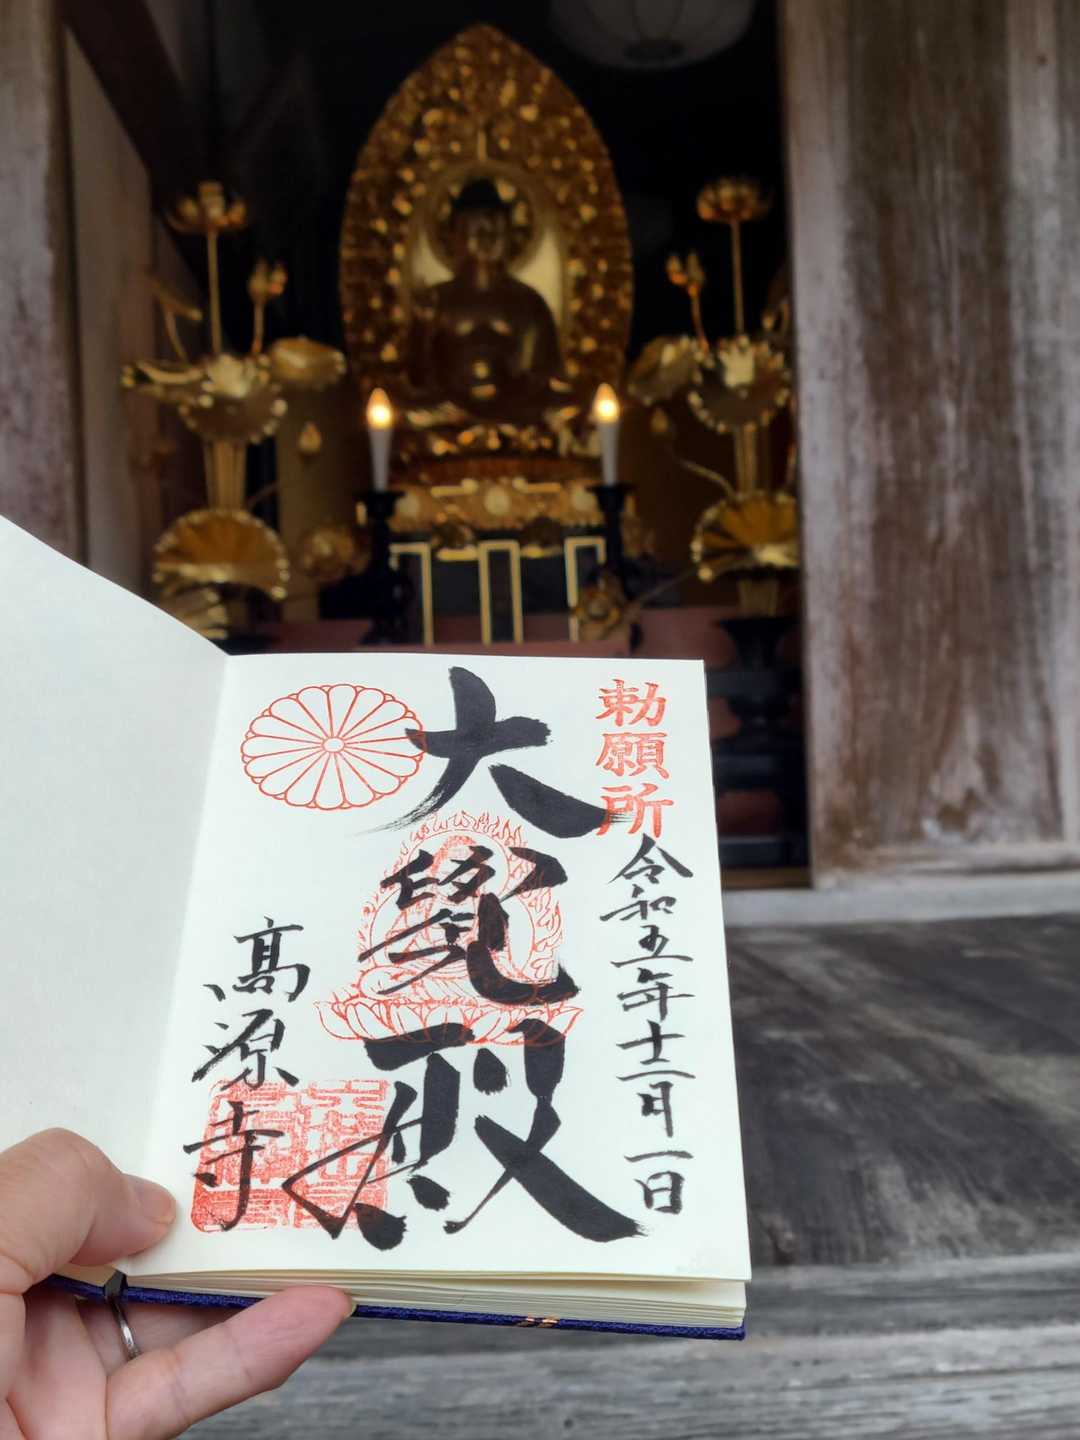 勅願所
令和五年十二月一日
大覺殿
高源寺